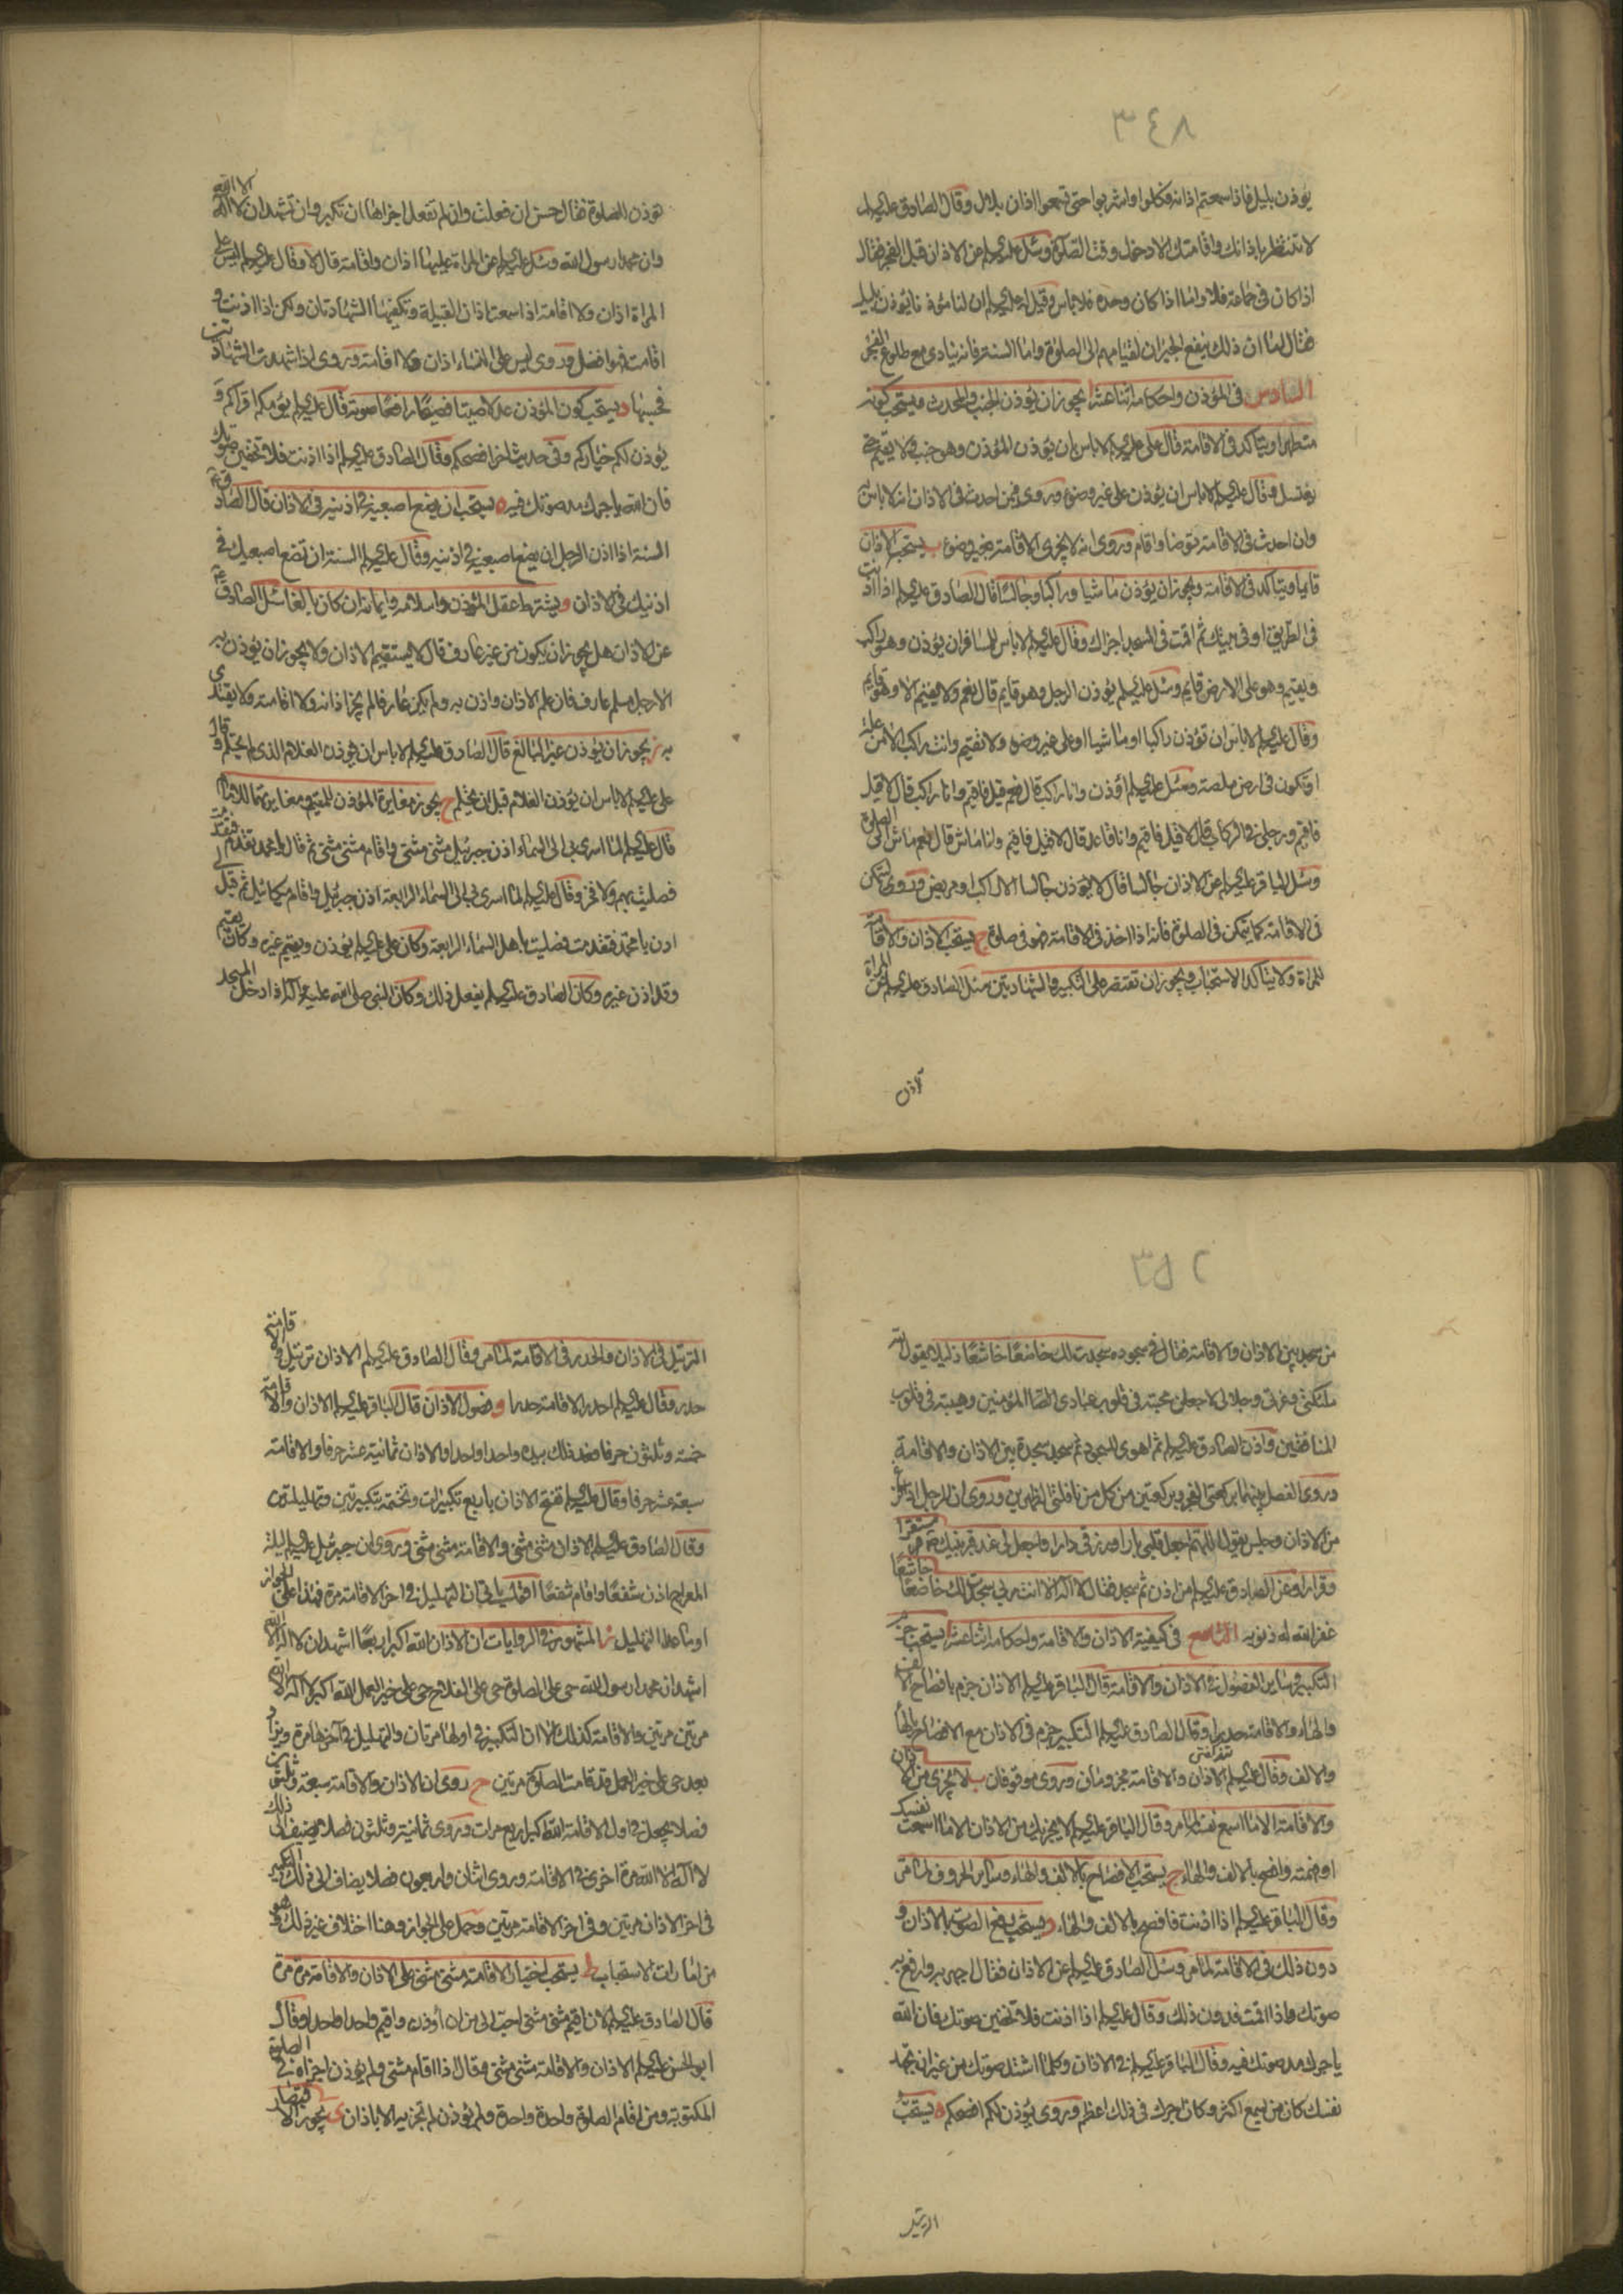 ٣٤٨
يؤذن بليل فاذا سمعتم اذانه فكلوا واشربوا حتى تسمعوا اذان بلال وقال الصادق عليه السلم
لا تنتظر باذانك واقامتك الا دخول وقت الصلوة وسئل عليه السلم عن الاذان قبل الفجر فقال
اذا كان في جماعة فلا واما اذا كان وحده فلا باس وقيل له عليه السلم ان لنا مؤذنا يؤذن بليل
فقال اما ان ذلك ينفع الجيران لقيامهم الى الصلوة واما السنة فانه ينادى مع طلوع الفجر
السادس في المؤذن واحكامه اثنا عشر ا يجوز ان يؤذن الجنب والمحدث ويستحب كونه
متطهرا ويتاكد في الاقامة قال على عليه السلم لا باس ان يؤذن المؤذن وهو جنب ولا يقيم حتى
يغتسل وقال عليه السلم لا باس ان يؤذن على غير وضوء وروى فيمن احدث في الاذان انه لا باس به
وان احدث في الاقامة توضا واقام وروى انه لا يجزى الاقامة بغير وضوء ب يستحب الاذان
قايما ويتاكد في الاقامة ويجوز ان يؤذن ماشيا وراكبا وجالسا قال الصادق عليه السلم اذا اذنت
في الطريق او في بيتك ثم اقمت في المسجد اجزاك وقال عليه السلم لا باس للمسافر ان يؤذن وهو راكب
ويقيم وهو على الارض قايم وسئل عليه السلم يؤذن الرجل وهو قايم قال نعم ولا يقيم الا وهو قايم
وقال عليه السلم لا باس ان تؤذن راكبا او ماشيا او على غير وضوء ولا تقيم وانت راكب الا من علة
او تكون في ارض ملصة وسئل عليه السلم اؤذن وانا راكب قال نعم قيل فاقيم وانا راكب قال لا قيل
فاقيم ورجلى في الركاب قال لا قيل فاقيم وانا قاعد قال لا قيل فاقيم وانا ماش قال نعم ماش الى الصلوة
وسئل الباقر عليه السلم عن الاذان جالسا قال لا يؤذن جالسا الا راكب او مريض وروى ليتمكن
في الاقامة كما يتمكن في الصلوة فانه اذا اخذ في الاقامة فهو في صلوة ج يستحب الاذان والاقامة
للمراة ولا يتاكد الاستحباب ويجوز ان تقتصر على التكبير والشهادتين سئل الصادق عليه السلم عن المراة
تؤذن
تؤذن للصلوة فقال حسن ان فعلت وان لم تفعل اجزاها ان تكبر وان تشهد ان لا اله الا الله
وان محمدا رسول الله وسئل عليه السلم عن المراة عليها اذان واقامة قال لا وقال عليه السلم ليس على
المراة اذان ولا اقامة اذا سمعت اذان القبيلة وتكفيها الشهادتان ولكن اذا اذنت و
اقامت فهو افضل وروى ليس على النساء اذان ولا اقامة وروى اذا شهدت الشهادتين
فحسبها د يستحب كون المؤذن عدلا صيتا فصيحا رافعا صوته قال عليه السلم يؤمكم اقراكم و
يؤذن لكم خياركم وفي حديث اخر افصحكم وقال الصادق عليه السلم اذا اذنت فلا تخفين صوتك
فان الله ياجرك مد صوتك فيه ه يستحب ان يضع اصبعيه في اذنيه في الاذان قال الصادق
السنة اذا اذن الرجل ان يضع اصبعيه في اذنيه وقال عليه السلم السنة ان تضع اصبعيك في
اذنيك في الاذان و يشترط عقل المؤذن واسلامه وايمانه ان كان بالغا سئل الصادق
عن الاذان هل يجوز ان يكون من غير عارف قال لا يستقيم الاذان ولا يجوز ان يؤذن به
الا رجل مسلم عارف فان علم الاذان واذن به ولم يكن عارفا لم يجز اذانه ولا اقامته ولا يقتدى
به ز يجوز ان يؤذن غير البالغ قال الصادق عليه السلم لا باس ان يؤذن الغلام الذى لم يحتلم وقال
على عليه السلم لا باس ان يؤذن الغلام قبل ان يحتلم ح يجوز مغايرة المؤذن للمقيم ومغايرتهما للامام
قال عليه السلم لما اسرى بى الى السماء اذن جبرئيل مثنى مثنى واقام مثنى مثنى ثم قال يا محمد تقدم فتقدمت
فصليت بهم ولا فخر وقال عليه السلم لما اسرى بى الى السماء الرابعة اذن جبرئيل واقام ميكائيل ثم قيل لى
ادن يا محمد فتقدمت فصليت باهل السماء الرابعة وكان على عليه السلم يؤذن ويقيم غيره وكان يقيم
وقد اذن غيره وكان الصادق عليه السلم يفعل ذلك وكان النبى صلى الله عليه واله اذا دخل المسجد
٣٥٢
من سجد بين الاذان والاقامة فقال في سجوده سجدت لك خاضعا خاشعا ذليلا يقول الله
ملئكتى وعزتى وجلالى لاجعلن محبته في قلوب عبادى المؤمنين وهيبته في قلوب
المنافقين واذن الصادق عليه السلم ثم اهوى للسجود ثم سجد سجدة بين الاذان والاقامة
وروى الفصل بينهما بركعتى الفجر وبركعتين من كل من نافلتى الظهرين وروى ان الرجل اذا فرغ
من الاذان وجلس يقول اللهم اجعل قلبى بارا ورزقى دارا واجعل لى عند قبر نبيك مستقرا
وقرارا وعن الصادق عليه السلم من اذن ثم سجد فقال لا اله الا انت ربى سجدت لك خاضعا خاشعا
غفر الله له ذنوبه التاسع في كيفية الاذان والاقامة واحكامه اثنا عشر ا يستحب جزم
التكبير وساير الفصول في الاذان والاقامة قال الباقر عليه السلم الاذان جزم بافصاح الالف
والهاء والاقامة حدرا وقال الصادق عليه السلم التكبير جزم في الاذان مع الافصاح بالهاء
والالف وقال عليه السلم الاذان والاقامة مجزومان وروى موقوفان ب لا يجزى من الاذان
والاقامة الا ما اسمع نفسه وقال الباقر عليه السلم لا يجزيك من الاذان الا ما اسمعت نفسك
او فهمته وافصح بالالف والهاء ج يستحب الافصاح بالالف والهاء وساير الحروف لما مر
وقال الباقر عليه السلم اذا اذنت فافصح بالالف والهاء د يستحب رفع الصوت بالاذان و
دون ذلك في الاقامة لما مر وسئل الصادق عليه السلم عن الاذان فقال اجهر به وارفع به
صوتك فاذا اقمت فدون ذلك وقال عليه السلم اذا اذنت فلا تخفين صوتك فان الله
ياجرك مد صوتك فيه وقال الباقر عليه السلم في الاذان وكلما اشتد صوتك من غير ان تجهد
نفسك كان من يسمع اكثر وكان اجرك في ذلك اعظم وروى يؤذن لكم افصحكم ه يستحب
الترتيل
الترتيل في الاذان والحدر في الاقامة لما مر وقال الصادق عليه السلم الاذان ترتيل والاقامة
حدر وقال عليه السلم احدر الاقامة حدرا و فصول الاذان قال الباقر عليه السلم الاذان والاقامة
خمسة وثلثون حرفا فعد ذلك بيده واحدا واحدا والاذان ثمانية عشر حرفا والاقامة
سبعة عشر حرفا وقال عليه السلم تفتح الاذان باربع تكبيرات وتختمه بتكبيرتين وتهليلتين
وقال الصادق عليه السلم الاذان مثنى مثنى والاقامة مثنى مثنى وروى ان جبرئيل عليه السلم ليلة
المعراج اذن شفعا واقام شفعا اقول ياتى ان التهليل في اخر الاقامة مرة فهذا على الجواز
او ما عدا التهليل ز المشهور في الروايات ان الاذان الله اكبر اربعا اشهد ان لا اله الا الله
اشهد ان محمدا رسول الله حى على الصلوة حى على الفلاح حى على خير العمل الله اكبر لا اله الا الله
مرتين مرتين والاقامة كذلك الا ان التكبير في اولها مرتان والتهليل في اخرها مرة ويزاد
بعد حى على خير العمل قد قامت الصلوة مرتين ح روى ان الاذان والاقامة سبعة وثلثون
فصلا يجعل في اول الاقامة الله اكبر اربع مرات وروى ثمانية وثلثون فصلا يضيف الى ذلك
لا اله الا الله مرة اخرى في الاقامة وروى اثنان واربعون فصلا يضاف الى ذلك التكبير
في اخر الاذان مرتين وفي اخر الاقامة مرتين وحمل على الجواز وهنا اختلاف غير ذلك وهو
من امارات الاستحباب ط يستحب اختيار الاقامة مثنى مثنى على الاذان والاقامة مرة مرة
قال الصادق عليه السلم لان اقيم مثنى مثنى احب الى من ان اؤذن واقيم واحدا واحدا وقال
ابو الحسن عليه السلم الاذان والاقامة مثنى مثنى وقال اذا اقام مثنى ولم يؤذن اجزاه في الصلوة
المكتوبة ومن اقام الصلوة واحدة واحدة ولم يؤذن لم تجزيه الا باذان ى يجوز الاقتصار